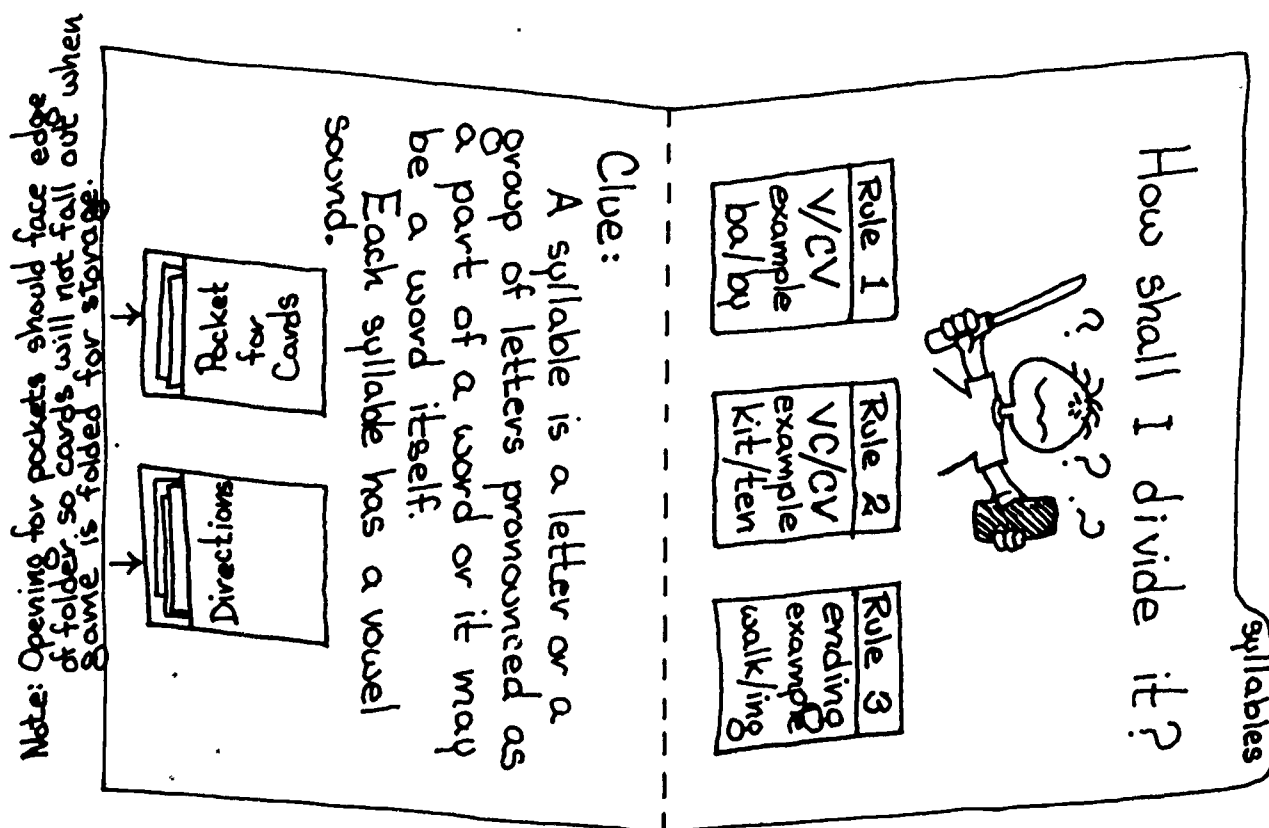 syllables
How shall I divide it?
? ? ?
Rule 1
V/CV
example
ba/by
Rule 2
VC/CV
example
kit/ten
Rule 3
ending
example
walk/ing
Clue:
A syllable is a letter or a
group of letters pronounced as
a part of a word or it may
be a word itself.
Each syllable has a vowel
sound.
Pocket
for
Cards
Directions
Note: Opening for pockets should face edge
of folder so cards will not fall out when
game is folded for storage.